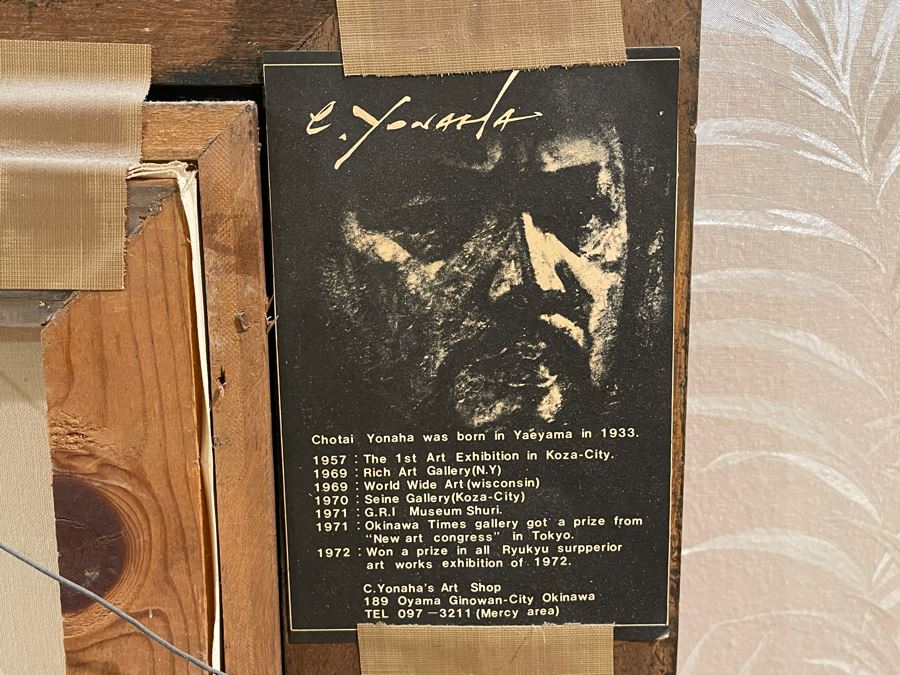 C. Yonaha
Chotai Yonaha was born in Yaeyama in 1933.
1957 : The 1st Art Exhibition in Koza-City.
1969 : Rich Art Gallery(N.Y)
1969 : World Wide Art(wisconsin)
1970 : Seine Gallery(Koza-City)
1971 : G.R.I Museum Shuri.
1971 : Okinawa Times gallery got a prize from
"New art congress" in Tokyo.
1972 : Won a prize in all Ryukyu surpperior
art works exhibition of 1972.
C.Yonaha's Art Shop
189 Oyama Ginowan-City Okinawa
TEL 097-3211(Mercy area)